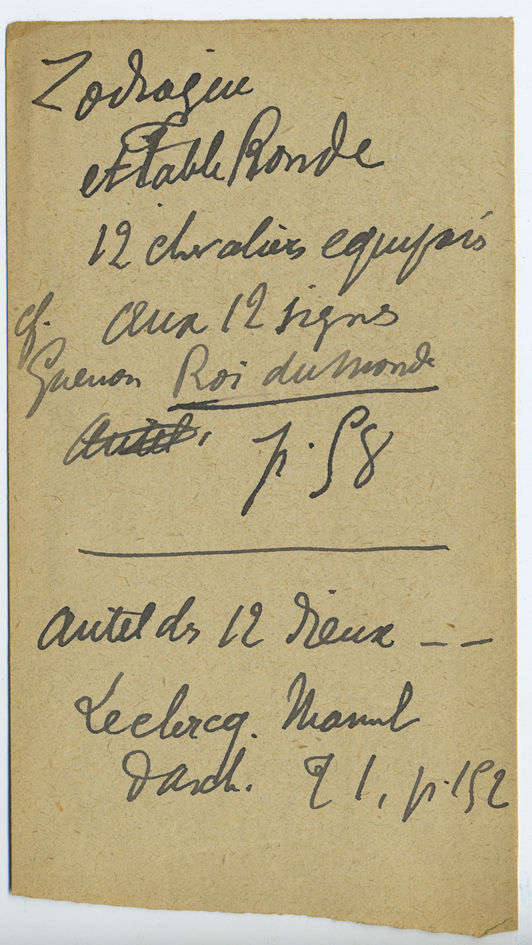 Zodiaque
et Table Ronde
12 chevaliers equiparés
cf. aux 12 signes
Guenon Roi du Monde
Autel, p. 58
Autel des 12 dieux - -
Leclercq. Manuel
d'arch. T 1, p. 152